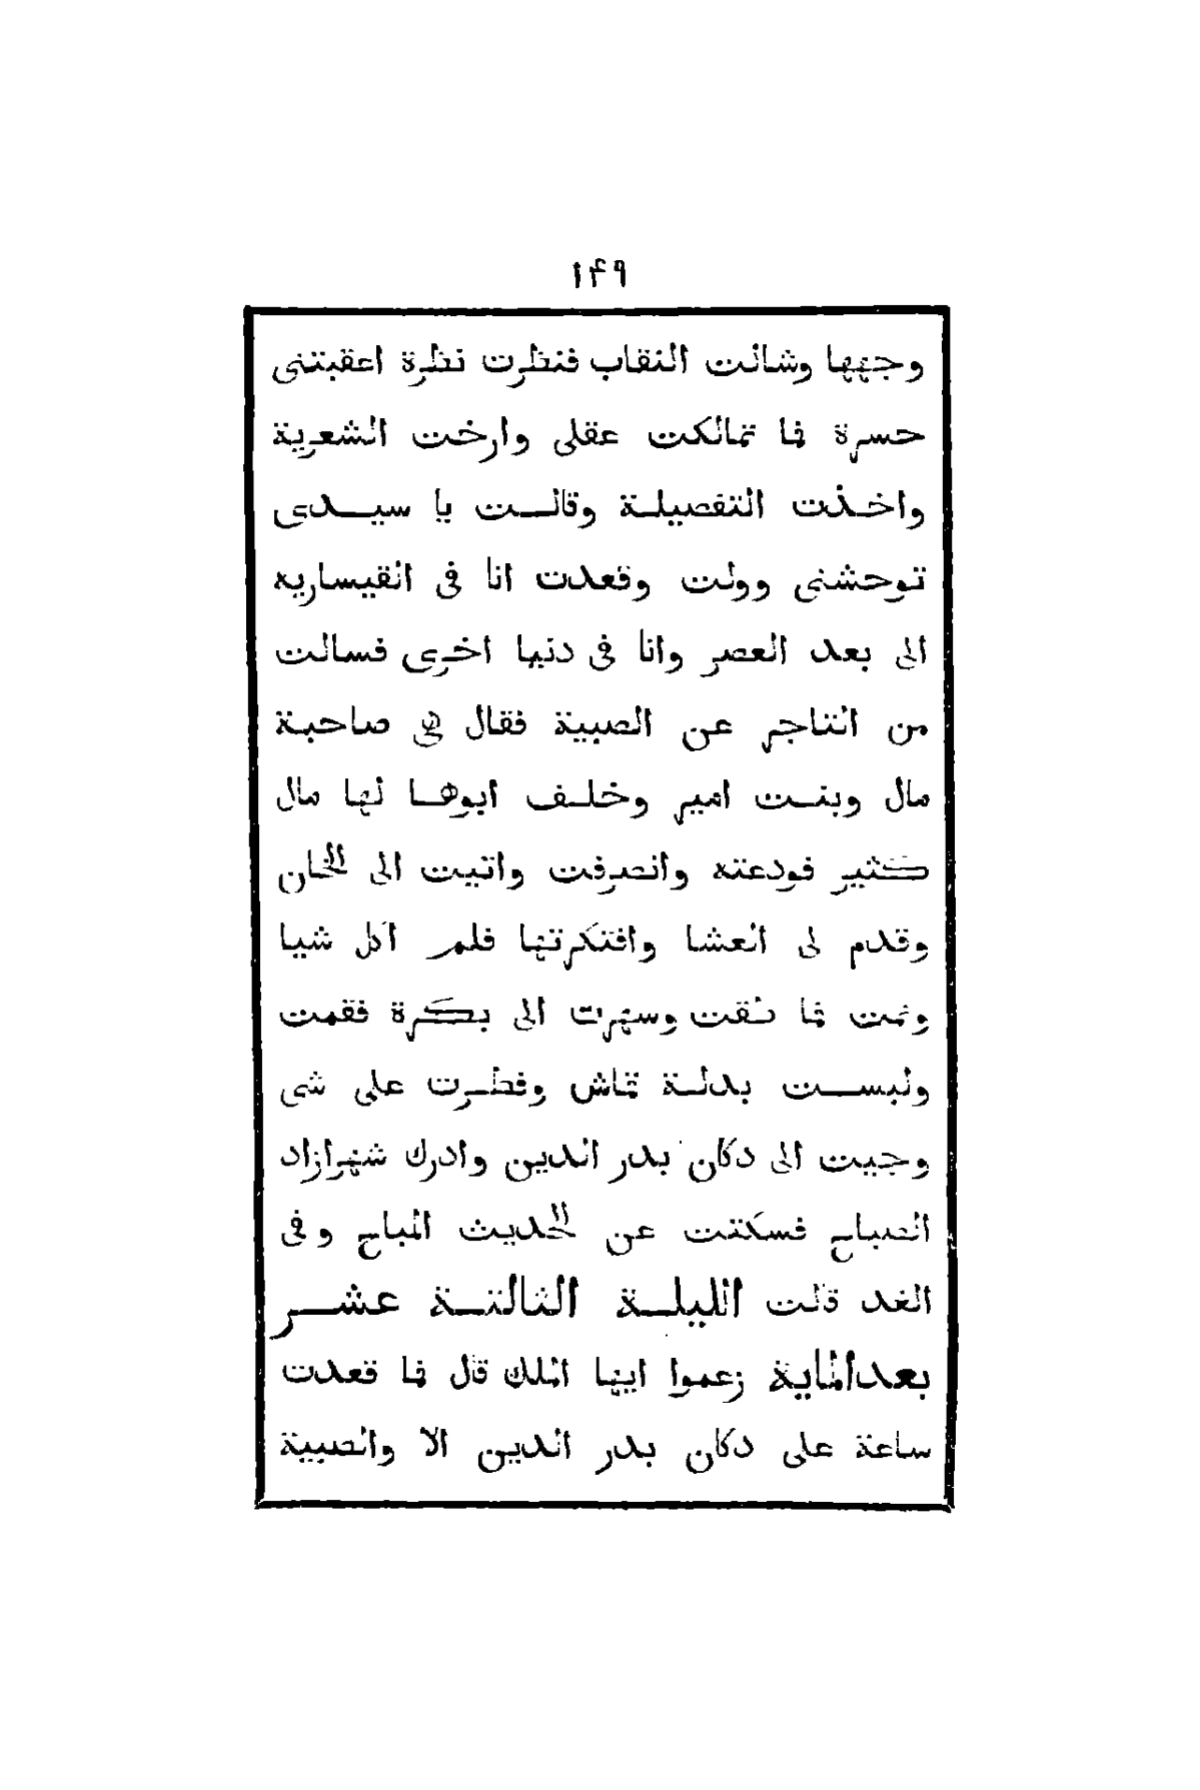 ١٤٩
وجهها وشالت النقاب فنظرت نظرة اعقبتنى
حسرة فما تمالكت عقلى وارخت الشعرية
واخذت التفصيلة وقالت يا سيدى
توحشنى وولت وقعدت انا فى القيساريه
الى بعد العصر وانا فى دنيا اخرى فسالت
من التاجر عن الصبية فقال لى صاحبة
مال وبنت امير وخلف ابوها لها مال
كثير فودعته وانصرفت واتيت الى الخان
وقدم لى العشا وافتكرتها فلم اكل شيا
ونمت فما طقت وسهرت الى بكرة فقمت
ولبست بدلة قماش وفطرت على شى
وجيت الى دكان بدر الدين وادرك شهرازاد
الصباح فسكتت عن الحديث المباح وفى
الغد قالت الليلة الثالثة عشر
بعد الماية زعموا ايها الملك قال فما قعدت
ساعة على دكان بدر الدين الا والصبية